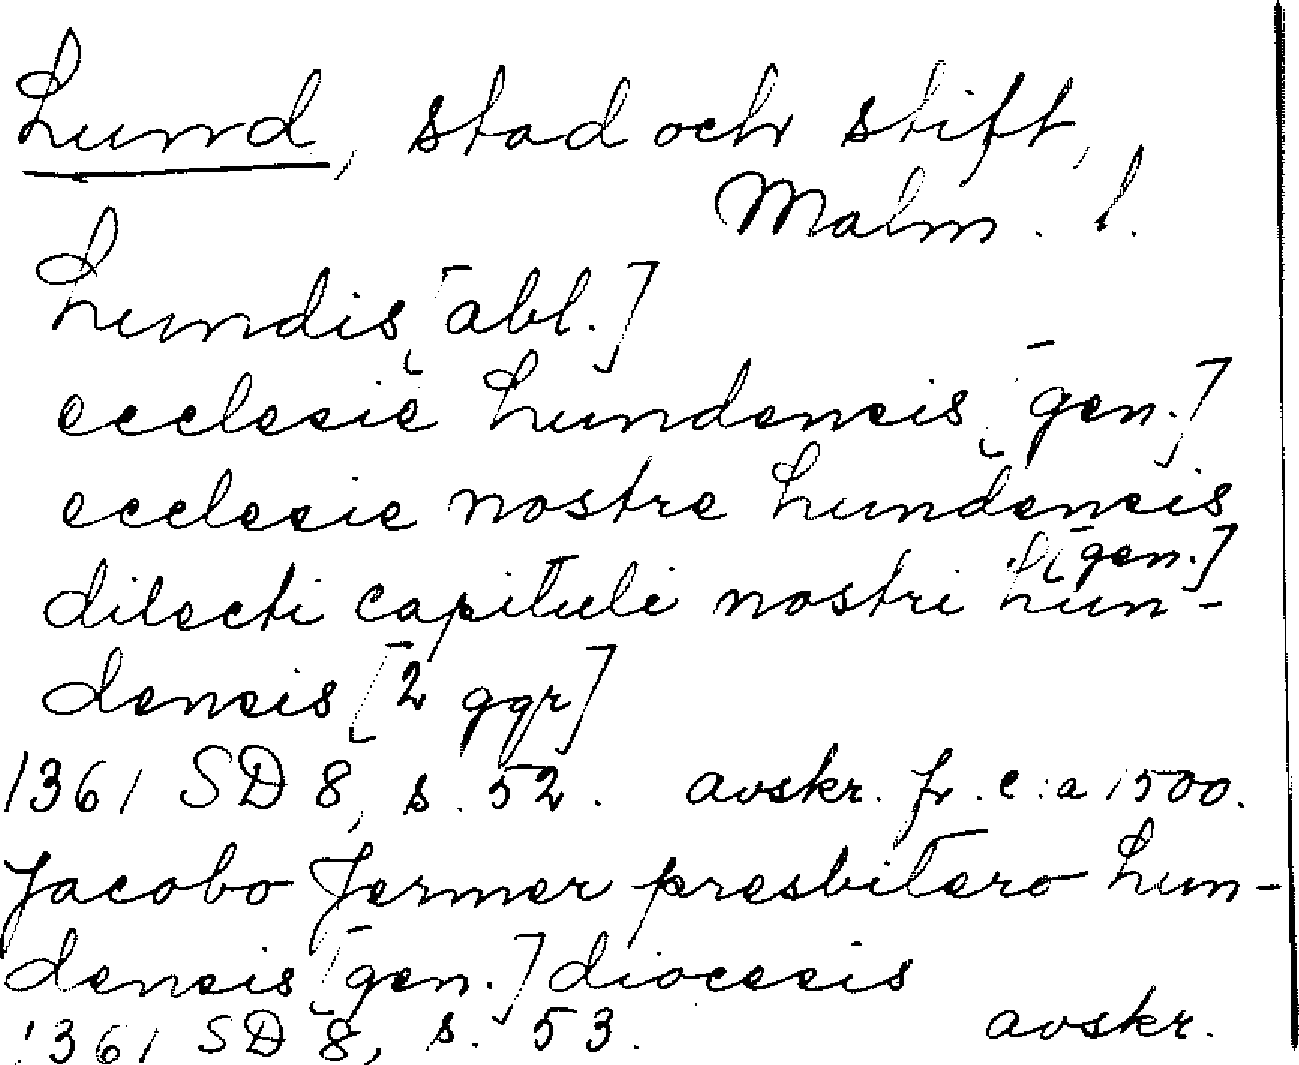 Lund, stad och stift,
Malm. l.
Lundis [abl.]
ecclesie Lundensis [gen.]
ecclesie nostre Lundensis
[gen.]
dilecti capituli nostri Lun-
densis [2 ggr]
1361 SD 8, s. 52. avskr. fr. c:a 1500.
Jacobo Jermer presbitero Lun-
densis [gen.] diocesis
1361 SD 8, s. 53. avskr.